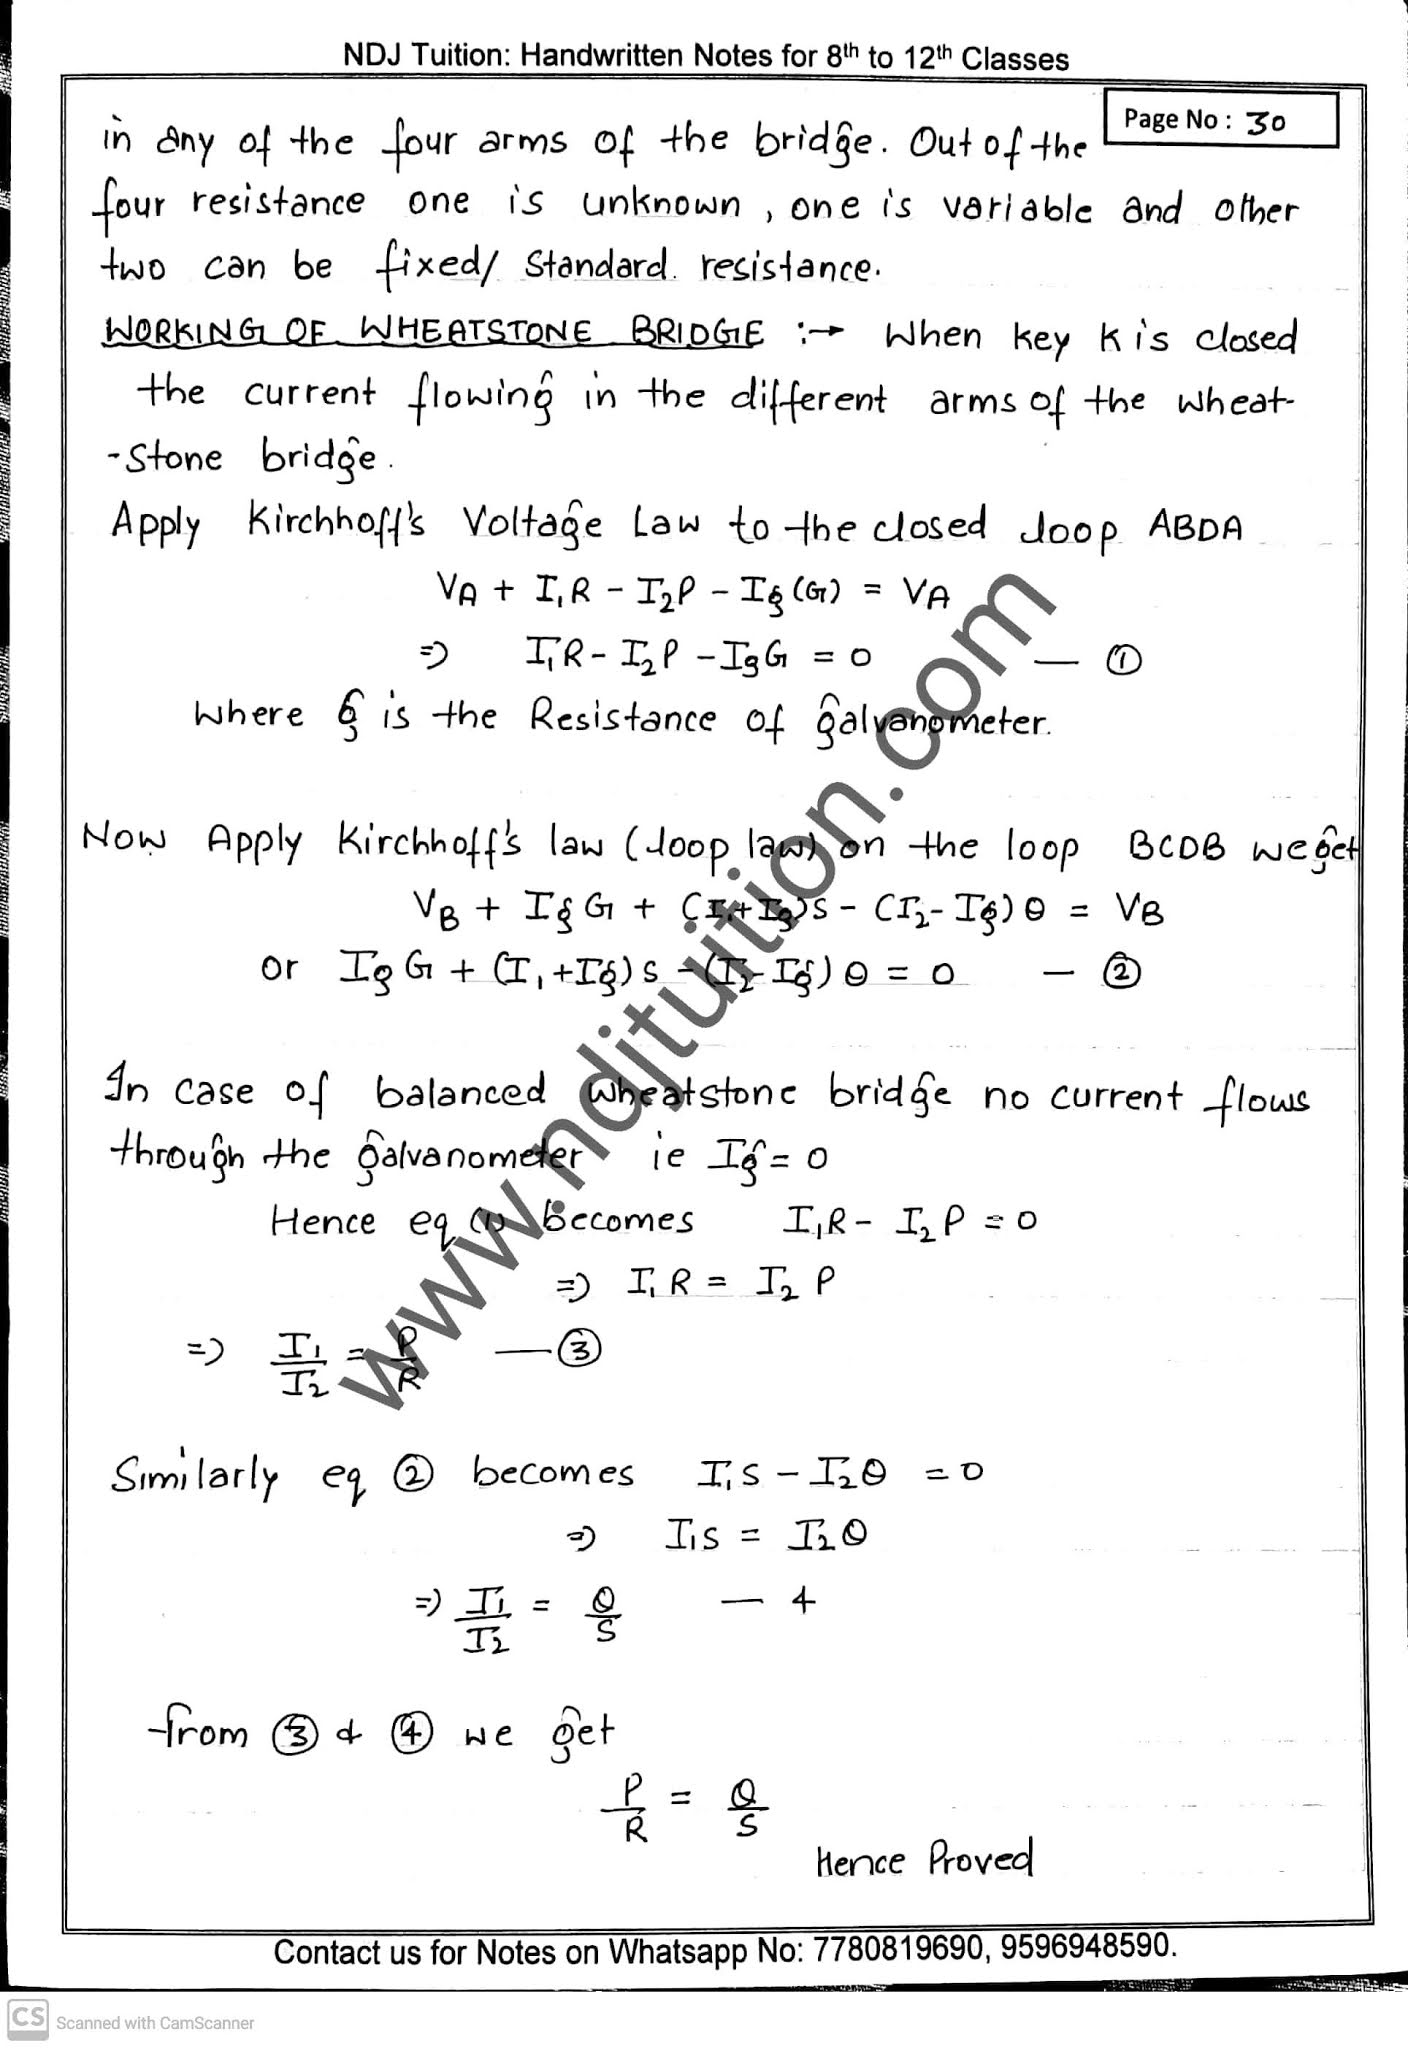 NDJ Tuition: Handwritten Notes for 8th to 12th Classes
Page No : 30
in any of the four arms of the bridge. Out of the
four resistance one is unknown, one is variable and other
two can be fixed/ Standard. resistance.
WORKING OF WHEATSTONE BRIDGE :→ When key K is closed
the current flowing in the different arms of the wheat-
-Stone bridge.
Apply Kirchhoff's Voltage Law to the closed loop ABDA
VA + I1R - I2P - Ig (G) = VA
=> I1R - I2P - IgG = 0 — ①
Where G is the Resistance of galvanometer.
Now Apply Kirchhoff's law (loop law) on the loop BCDB we get
VB + Ig G + (I1+Ig)S - (I2-Ig)Q = VB
or Ig G + (I1+Ig)S - (I2-Ig)Q = 0 — ②
In case of balanced Wheatstone bridge no current flows
through the galvanometer ie Ig = 0
Hence eq (1) becomes I1R - I2P = 0
=> I1R = I2 P
=> I1/I2 = P/R — ③
Similarly eq ② becomes I1S - I2Q = 0
=> I1S = I2Q
=> I1/I2 = Q/S — 4
from ③ & ④ we get
P/R = Q/S
Hence Proved
www.ndjtuition.com
Contact us for Notes on Whatsapp No: 7780819690, 9596948590.
CS Scanned with CamScanner